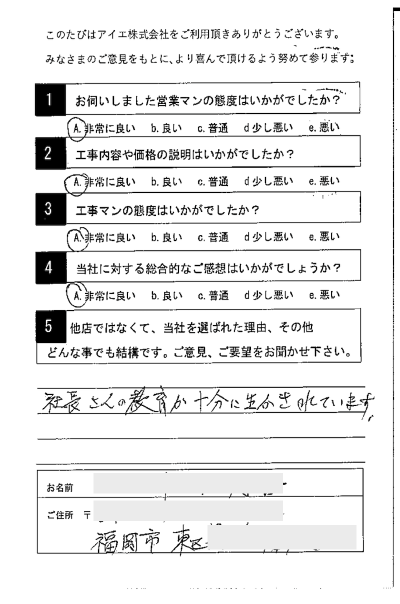 このたびはアイエ株式会社をご利用頂きありがとうございます。
みなさまのご意見をもとに、より喜んで頂けるよう努めて参ります。
1 お伺いしました営業マンの態度はいかがでしたか？
A.非常に良い b.良い c.普通 d少し悪い e.悪い
2 工事内容や価格の説明はいかがでしたか？
A.非常に良い b.良い c.普通 d少し悪い e.悪い
3 工事マンの態度はいかがでしたか？
A.非常に良い b.良い c.普通 d少し悪い e.悪い
4 当社に対する総合的なご感想はいかがでしょうか？
A.非常に良い b.良い c.普通 d少し悪い e.悪い
5 他店ではなくて、当社を選ばれた理由、その他
どんな事でも結構です。ご意見、ご要望をお聞かせ下さい。
社長さんの教育が十分に生かされています。
お名前
ご住所 〒
福岡市 東区